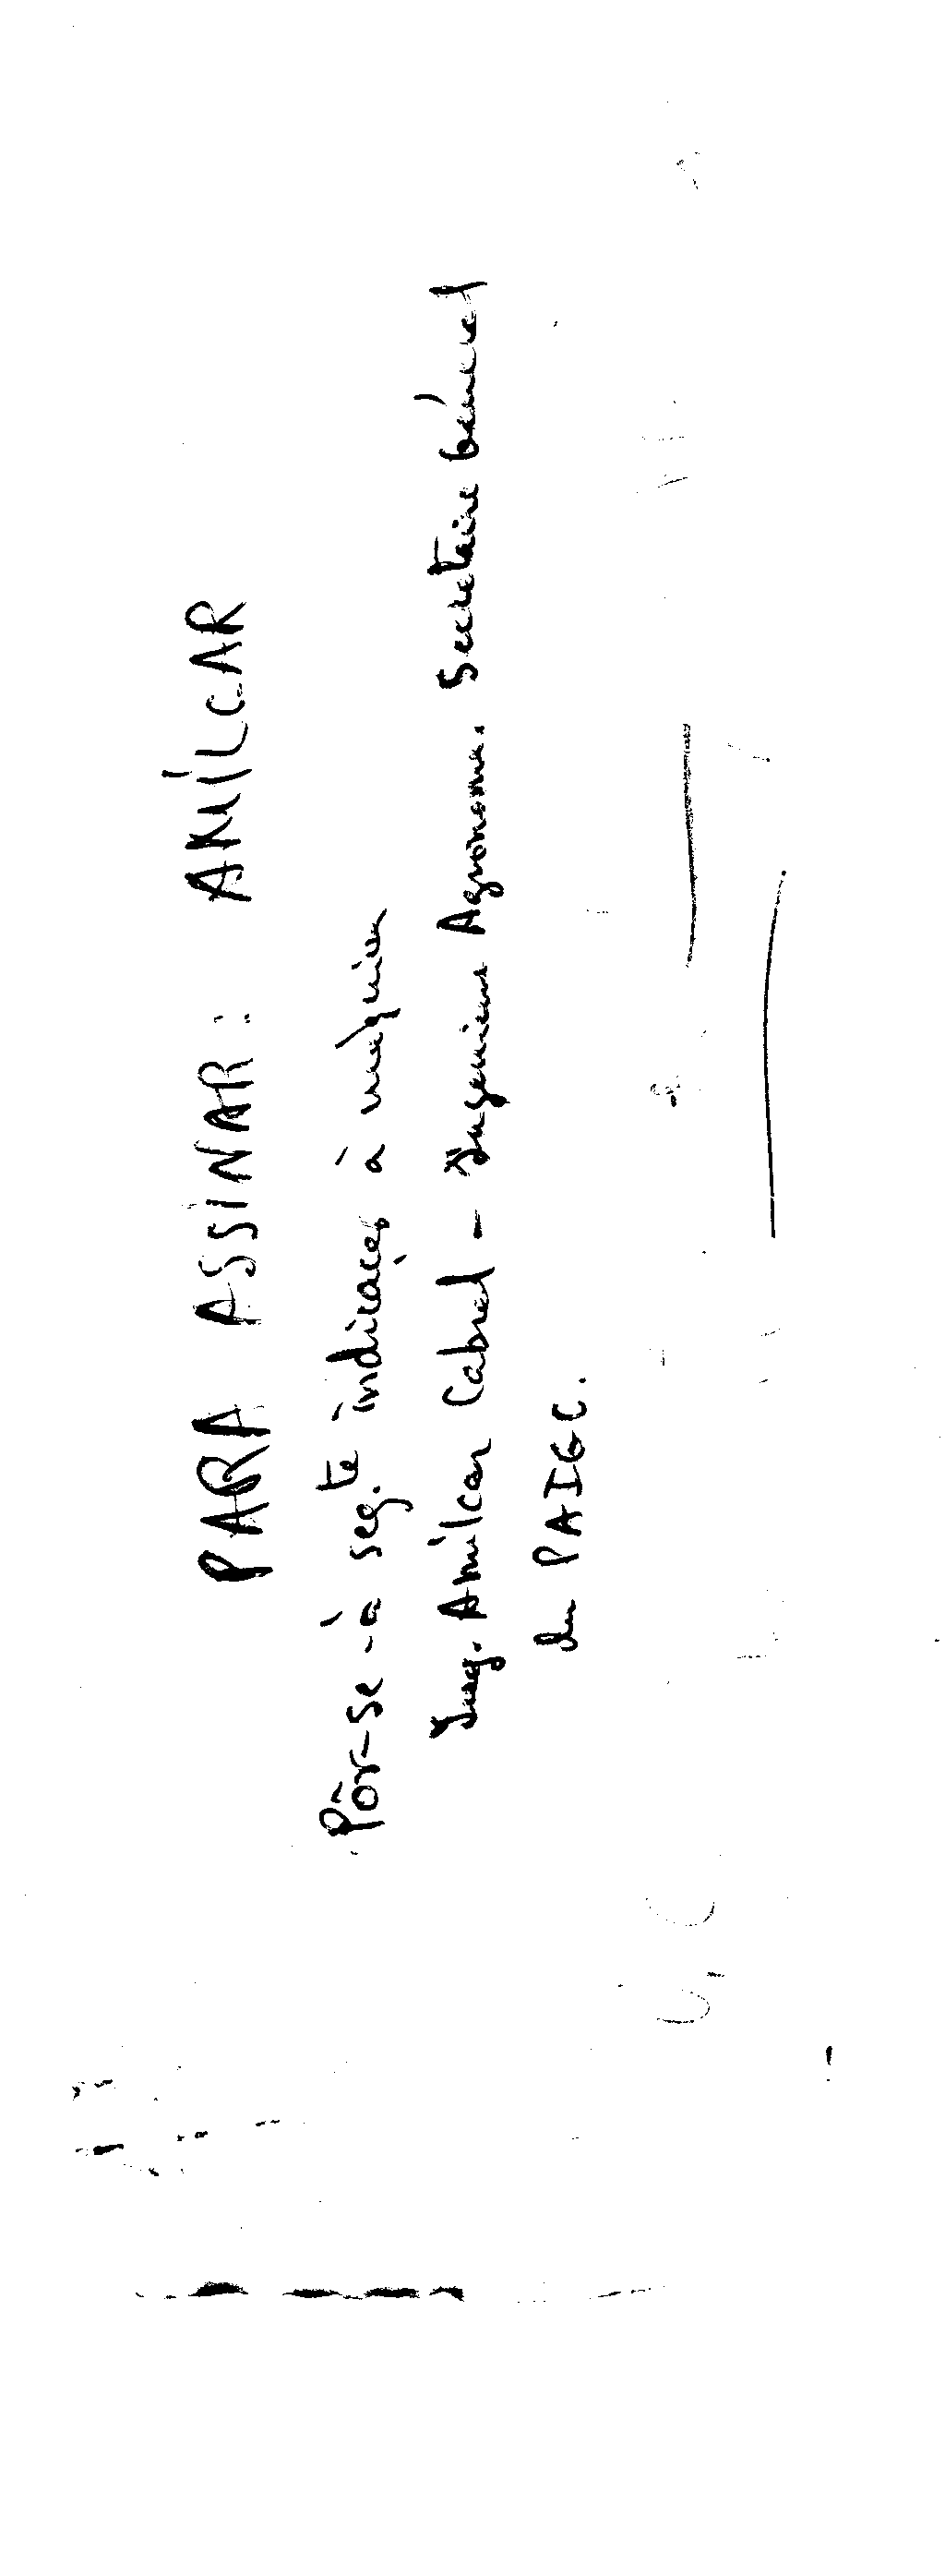 PARA ASSINAR: AMÍLCAR
Pôr-se-à seg.te indicação à máquina
Ing. Amílcar Cabral - Ingenieur Agronome. Secretaire Géneral
du PAIGC.